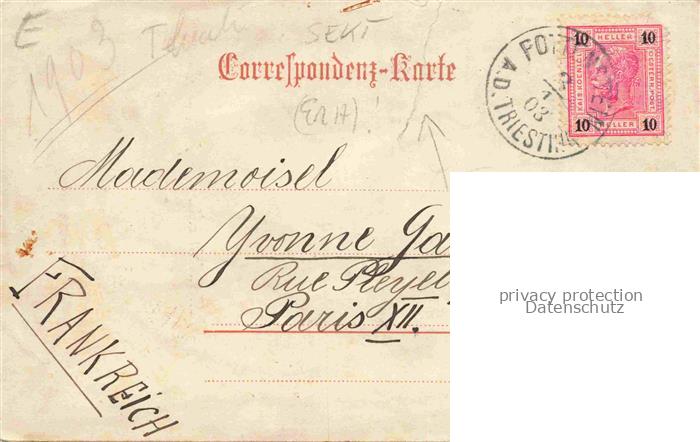 E
1903
SEKT
Correspondenz-Karte
10 HELLER 10
KAIS. KOENIGL. OESTERR. POST
10 HELLER 10
POTTENSTEIN
A.D. TRIESTING
03
Mademoisel
Yvonne Ga
Rue Pleyel
Paris XII.
FRANKREICH
privacy protection
Datenschutz